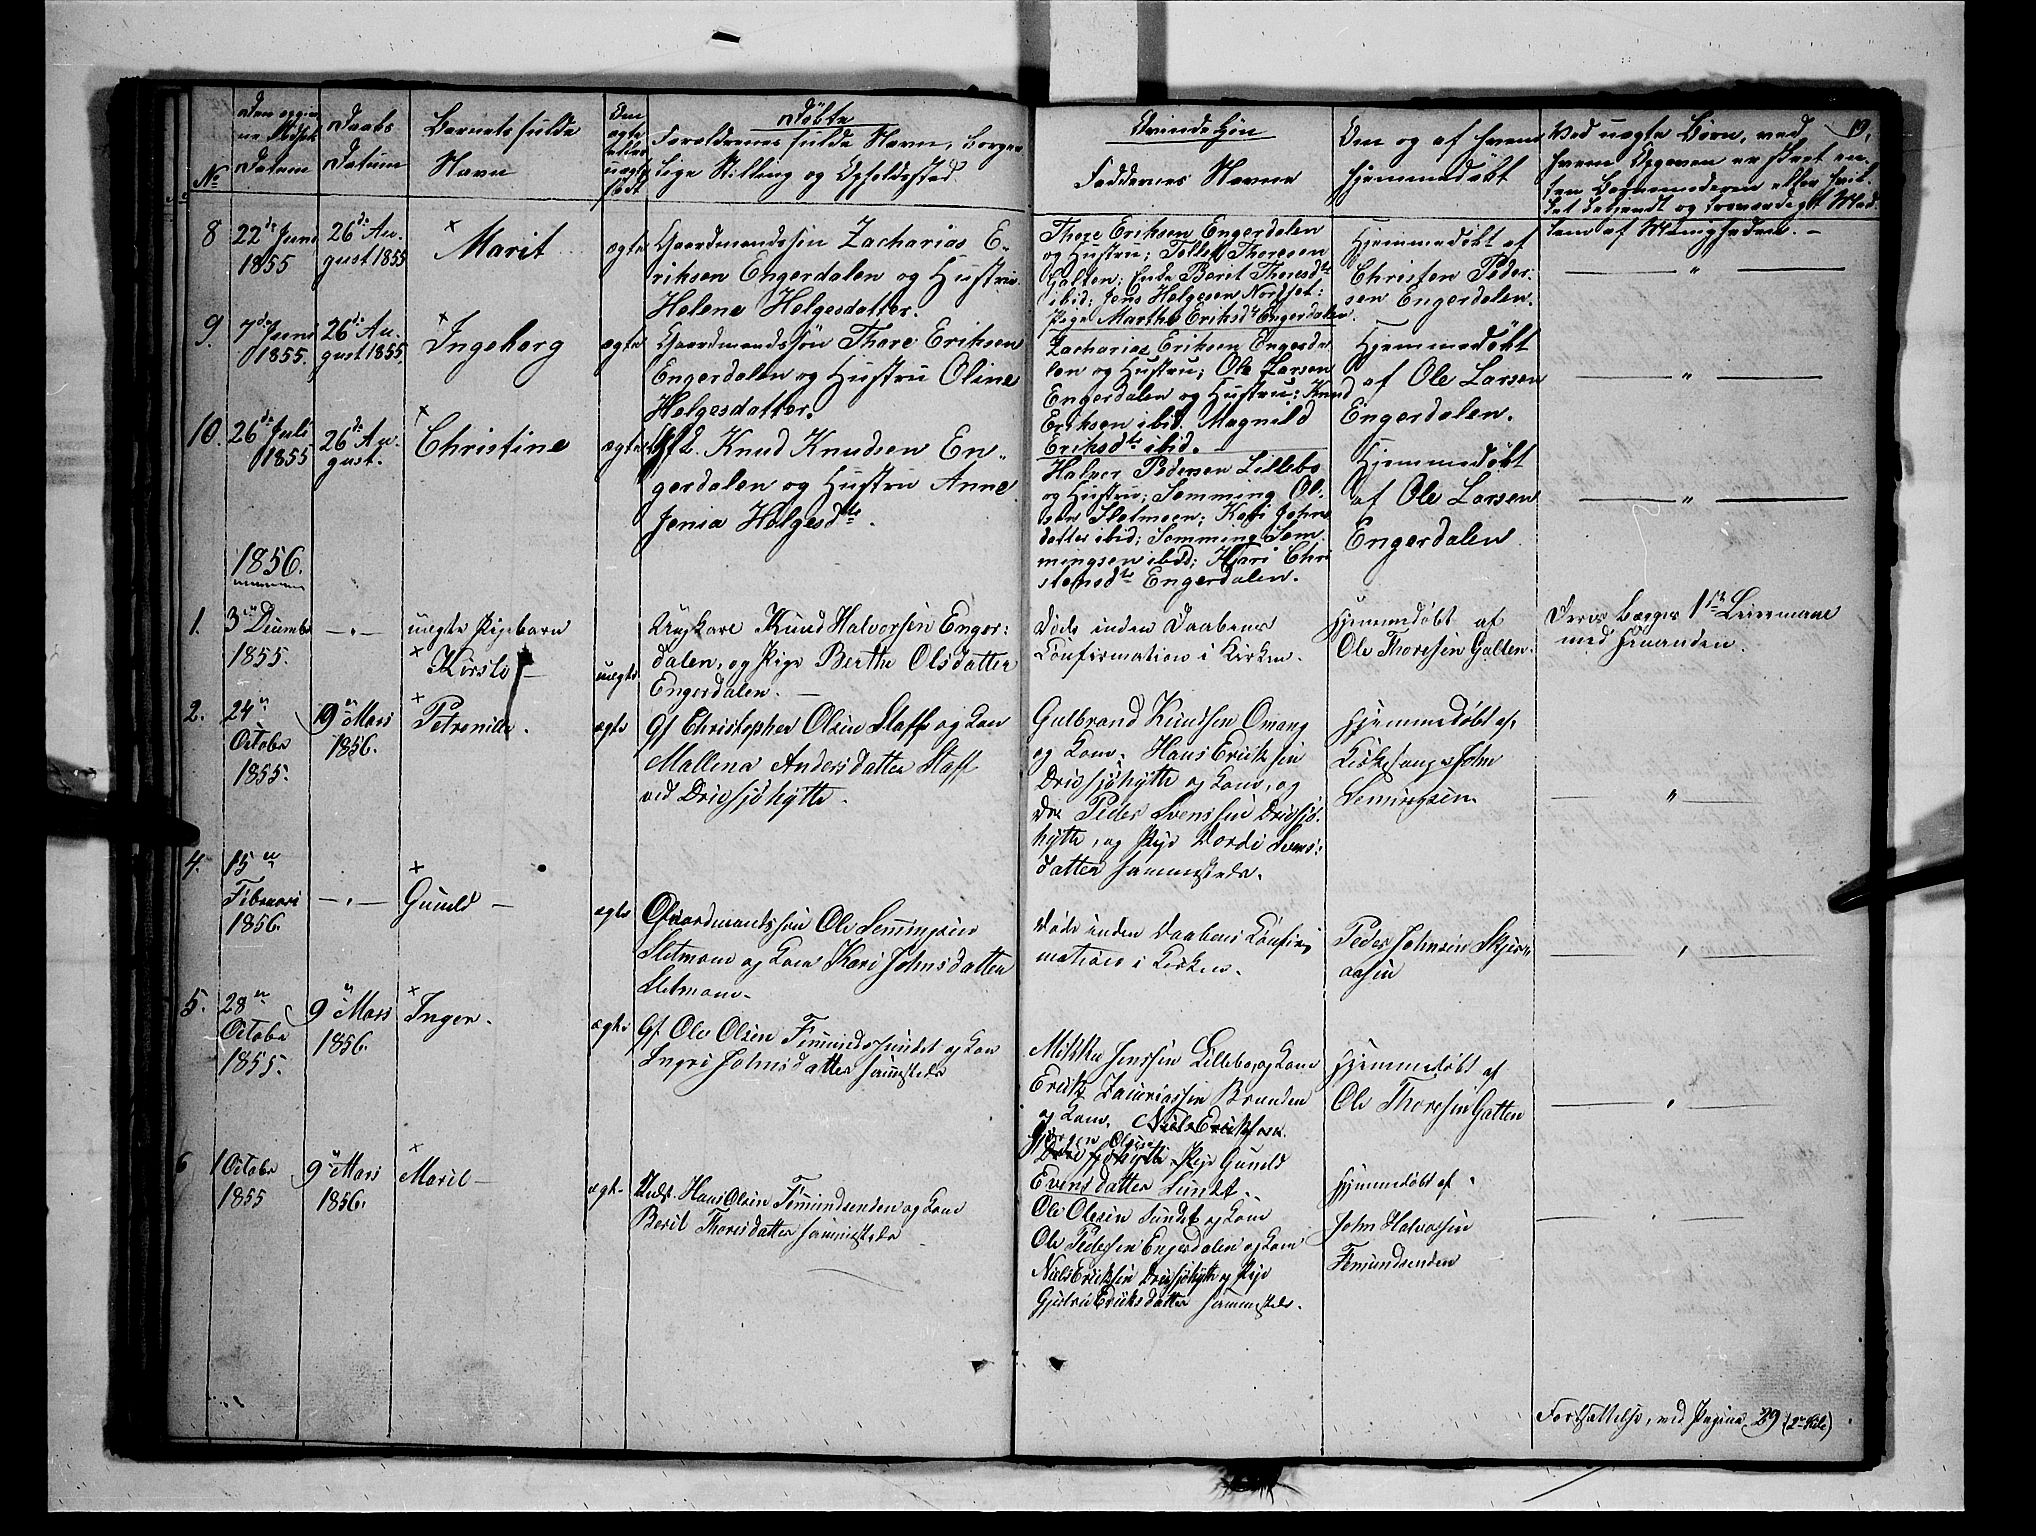 Døbte
Qvindekjøn
19.
No
Datum
Daabs
Datum
Barnets fulde
Navn
Den
ægte
eller
uægte
født
Forældrenes fulde Navn, borger
lige Stilling og Opholdssted.
Faddernes Navne
Om og af hvem
hjemmedøbt
Ved uægte Børn, ved
hvem Opgaven er skeet en-
ten Barnemoderen eller hvil-
8
22de Juni
1855
26de Au-
gust 1855
Marit
ægte
Gaardmandssøn Zacharias E-
riksen Engerdalen og Hustru
Helene Helgesdatter.
Thore Eriksen Engerdalen
og Hustru; Tollef Thoresen
Galten; Enke Beret Thoresdtr
ibid; Jens Helgesen Nordset;
Pige Marthe Eriksdtr Engerdalen.
Hjemmedøbt af
Christen Peder-
sen Engerdalen.
9.
7de Juni
1855.
26de Au-
gust 1855.
Ingeborg
ægte
Gaardmandssøn Thore Eriksen
Engerdalen og Hustru Oline
Helgesdatter.
Zacharias Eriksen Engerda
len og Hustru; Ole Larsen
Engerdalen og Hustru; Knud
Eriksen ibid. Magnild
Eriksdtr ibid.
Hjemmedøbt
af Ole Larsen
Engerdalen.
10.
26de Juli
1855
26de Au-
gust.
Christine
ægte
Gf. Knud Knudsen En-
gerdalen og Hustru Anne
Jenia Helgesdtr.
Halvor Pedersen Lillebo
og Hustru; Semming Ol-
sen Sletmoen; Kari Johns
datter ibid; Semming Sem
mingsen ibid; Kari Chri
stensdtr Engerdalen.
Hjemmedøbt
af Ole Larsen
Engerdalen
1856.
1.
3en Decembr
1855.
uægte Pigebarn
Kirsti
uægte
Ungkarl Knud Halvorsen Enger:
dalen, og Pige Berthe Olsdatter
Engerdalen.
Døde inden Daabens
Confirmation i Kirken.
Hjemmedøbt af
Ole Thoresen Galten.
Deres begges 1ste Leiermaal
med hinanden.
2.
24en
Octobr
1855.
9en Mars
1856.
Petronille.
ægte
Gf Christopher Olsen Staff og Kone
Mallena Andersdatter Staff
ved Drevsjøhytte.
Gulbrand Knudsen Omang
og Kone. Hans Eriksen
Drevsjøhytte og Kone, og
Dr. Peder Svenssen Drevsjø-
hytte, og Pige Dordi Svens-
datter sammesteds.
Hjemmedøbt af
Kirkesanger John
Semingsen.
4.
15en
Februari
1856.
Gunild
ægte
Gaardmandssøn Ole Semingsen
Sletmoen og Kone Kari Johnsdatter
Sletmoen.
Døde inden Daabens Confir-
mation i Kirken.
Peder Johnsen Skjer-
aasen
5.
28en
Octobr
1855.
9en Mars
1856.
Inger.
ægte
Gf Ole Olsen Femundssundet og Kone
Ingri Johnsdatter sammesteds
Mikkel Jenssen Lillebo og Kone
Erik Zacariassen Brænden
og Kone. Niels Eriksen
Jørgen Olsen
Drevsjøhytte Pige Gunild
Evensdatter Sundet.
Hjemmedøbt af
Ole Thoresen Galten
6
1 Octobr
1855
9en Mars
1856.
Marit
ægte
Inds. Hans Olsen Femundsenden og Kone
Berit Thoresdatter sammesteds
Ole Olesen Sundet og Kone
Ole Pedersen Engerdalen og Kone
Niels Eriksen Drevsjøhytte og Pige
Gjulru Eriksdatter sammesteds.
Hjemmedøbt af
John Halvorsen
Femundsenden
Fortsættelse, ved Pagina 29